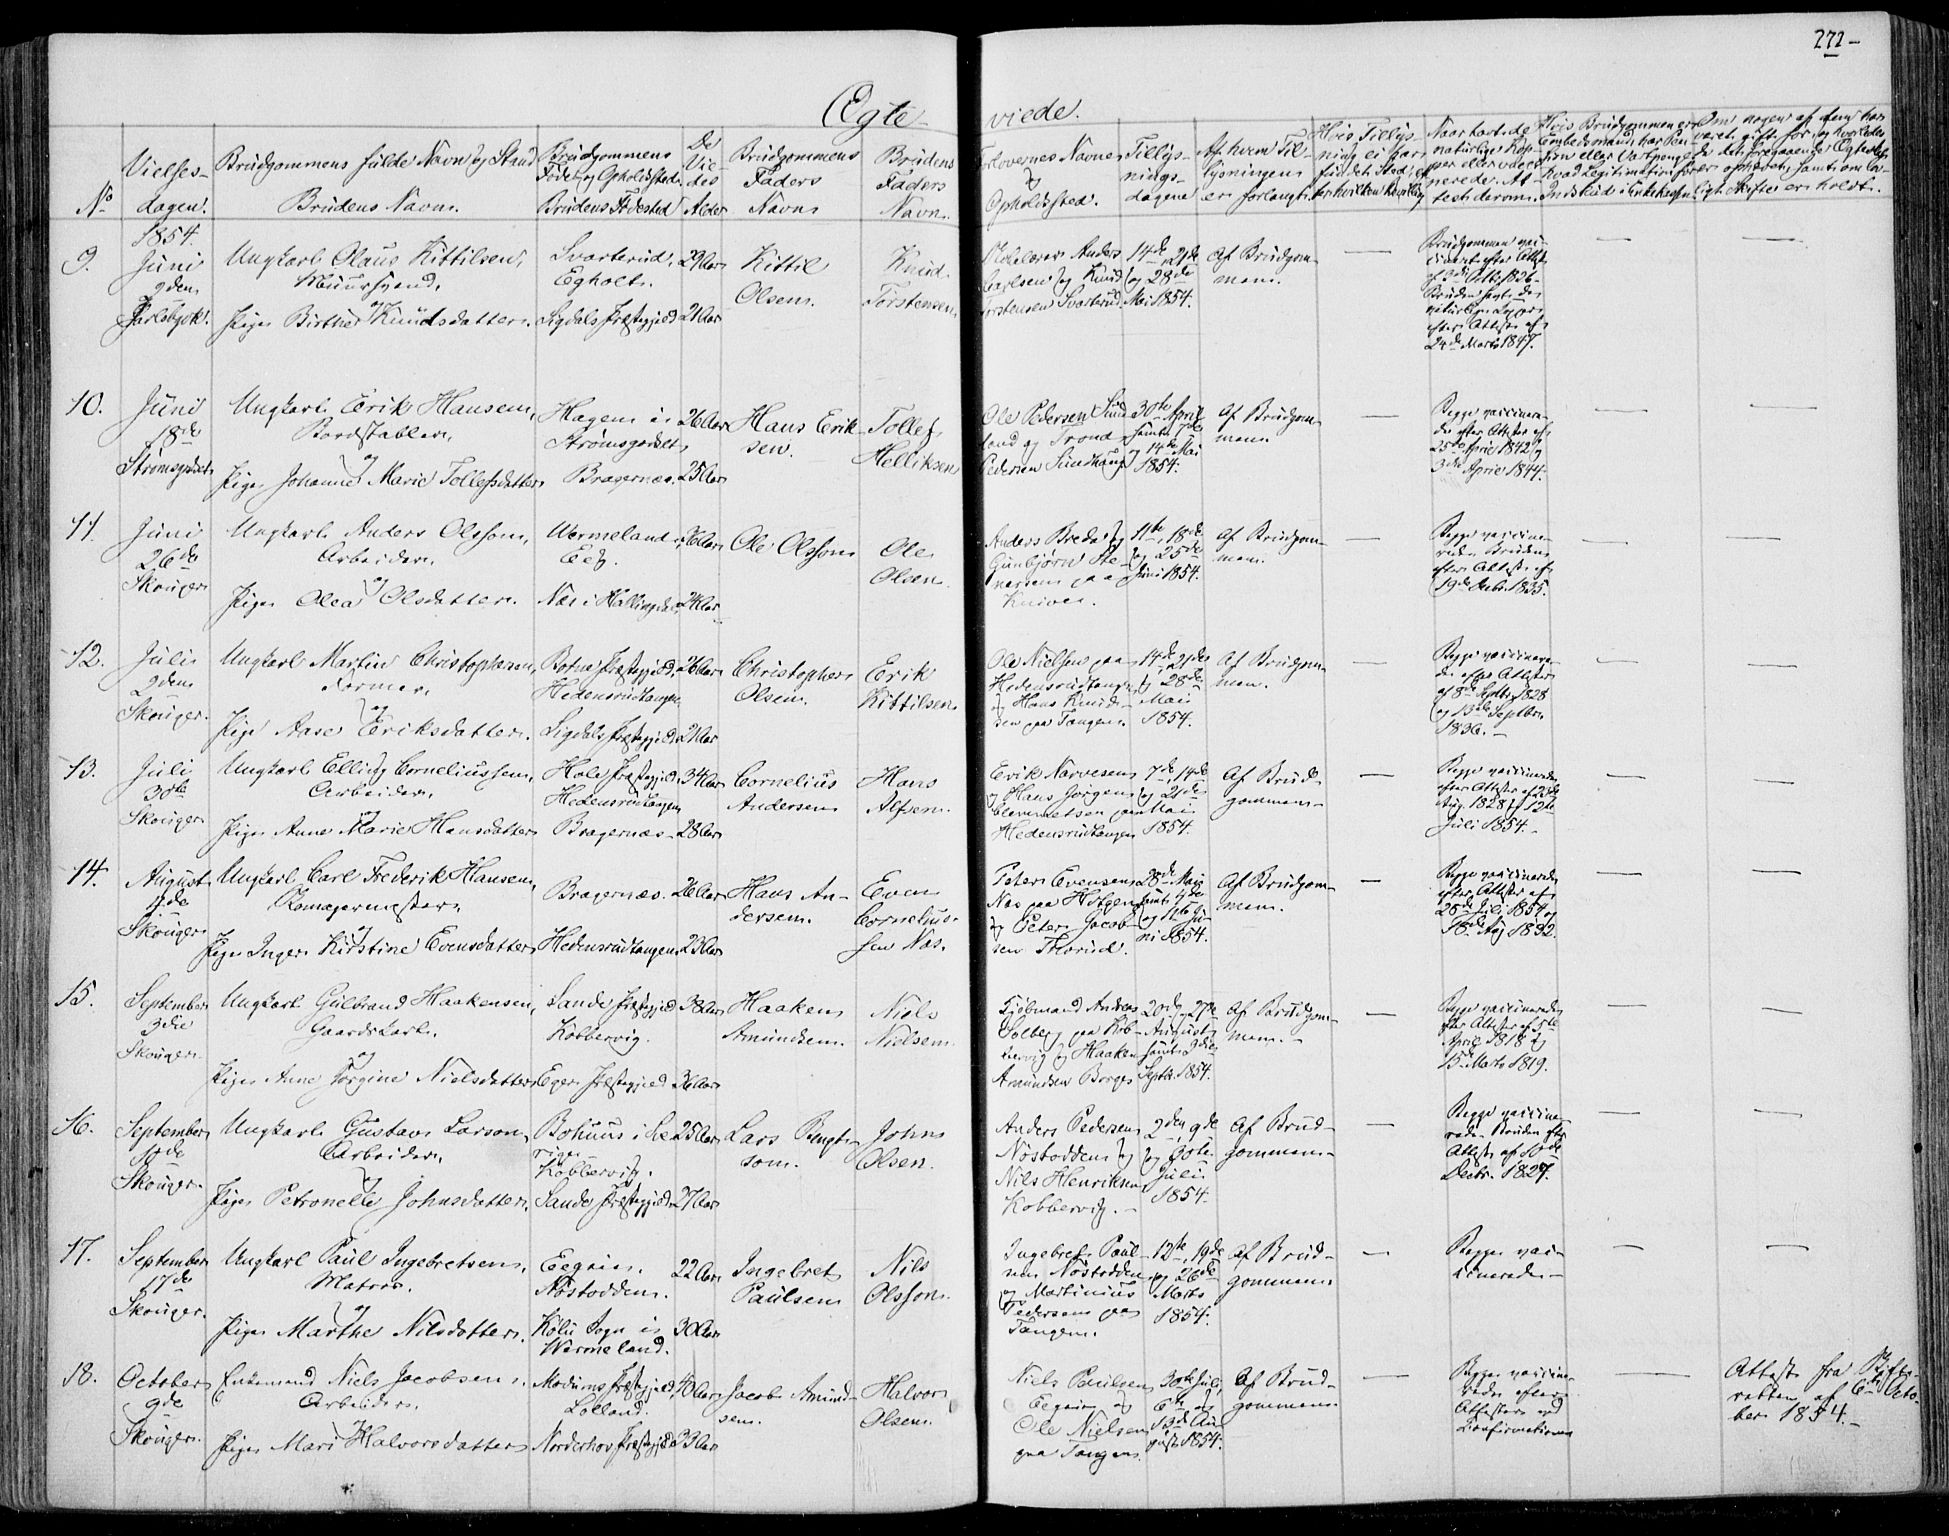 272 -
Ægte- viede.
No
Vielses-
dagen.
Brudgommens fulde Navn og Stand
Brudens Navn.
Brudgommens
Føde og Opholdsted.
Brudens Fødested
De
Vie-
des
Alder
Brudgommens
Faders
Navn
Brudens
Faders
Navn.
Forlovernes Navne
og
Opholdssted.
Tillys-
nings-
dagene
Af hvem Til-
lysningen
er forlangt.
1854.
9. Juni
9den
Jarlsbg k.
Ungkarl Olaus Kittilsen,
Muursvend,
og
Pige Birthe Knudsdatter.
Svarterud,
Egholt.
Sigdals Præstegjeld
29 Aar
21 Aar
Kittil
Olsen.
Knud
Torstensen
Carlsen og Knud
Torstensen Svarterud.
14de, 21de
og 28de
Mai 1854.
Af Brudgom-
men.
24de Marts 1847.
10. Juni
18de
Strømsgodset
Ungkarl Erik Hansen,
Bordstabler,
og
Pige Johanne Marie Tollefsdatter
Hagen i
Strømsgodset,
Bragernæs.
26 Aar
25 Aar
Hans Erik-
sen.
Tollef
Helliksen
Ole Pedersen Sund-
land og Trond
Pedersen Sundhaug
30te April
samt 7de
og 14de Mai
1854.
Af Brudgom-
men.
Begge vaccinere-
de efter Attester af
25de April 1842 og
3die April 1844.
11. Juni
26de
Skouger
Ungkarl Anders Olsson,
Arbeider,
og
Pige Olea Olsdatter.
Wermeland,
Eeg.
Næs i Hallingdal.
26 Aar
24 Aar
Ole Olsson
Ole
Olsen
Anders Breda og
Gunbjørn Ste-
nersen paa
Kniven.
11te, 18de
og 25de
Juni 1854.
Af Brudgom-
men.
Begge vaccine-
rede, Bruden
efter Attest af
19de Octbr. 1835.
12. Juli
2den
Skouger.
Ungkarl Martin Christophersen,
Former,
og
Pige Aase Eriksdatter.
Botne Præstegjeld,
Hedensrudtangen
Sigdals Præstegjeld
26 Aar
21 Aar
Christopher
Olsen.
Erik
Kittilsen
Ole Nielsen paa
Hedensrudtangen
og Hans Knud-
sen paa Tangen.
14de, 21de
og 28de
Mai
1854.
Af Brudgom-
men.
Begge vaccinere-
de efter Attester
af 8de Septbr. 1828
og 13de Septbr.
1836.-
13. Juli
30te
Skouger
Ungkarl Elling Corneliussen,
Arbeider,
og
Pige Anne Marie Hansdatter
Hole Præstegjeld
Hedensrudtangen
Bragernæs
34 Aar
28 Aar
Cornelius
Andersen
Hans
Alfsen.
Erik Narvesen
og Hans Jørgen
Clemmetsen paa
Hedensrudtangen
7de, 14de
og 21de
Mai
1854.
Af Brud-
gommen
Begge vaccinerede
efter Attester af 23de
Aug. 1828 og 12te
Juli 1854.-
14. August
Skouger
Ungkarl Carl Frederik Hansen,
og
Pige Inger Kirstine Evensdatter
Bragernæs.
Hedensrudtangen
26 Aar
23 Aar
Hans An-
dersen.
Even
Cornelius-
sen Næs.
Peter Evensen
Næs paa Holgen
og Peter Jacob-
sen Thorrud.
28de Mai
samt 4de
og 11te Ju-
ni 1854.
Af Brudgom-
men.
Begge vaccinerede
efter Attester af
28de Juli 1854 og
18de Aug 1832.
15. September
3die
Skouger.
Ungkarl Gulbrand Haakensen,
Gaardskarl.
og
Pige Anne Jørgine Nielsdatter
Sande Præstegjeld
Kobbervig.
Eger Præstegjeld
38 Aar
36 Aar
Haaken
Amundsen.
Niels
Nielsen
Kjøbmand Andreas
Solberg paa Kob-
bervig og Haaken
Amundsen Borge
20de, 27de
August
samt 3die
Septbr. 1854.
Af Brudgom-
men.-
Begge vaccinerede
efter Attester af 5te
April 1818 og
15de Marts 1819.
16. September
10de
Skouger.
Ungkarl Gustav Larson,
Arbeider,
og
Pige Petronelle Johnsdatter.
Bohuus i Sve-
rige,
Kobbervig.
Sande Præstegjeld
25 Aar
27 Aar
Lars Bengt-
son.
John
Olsen.
Anders Pedersen
Nøstodden og
Nils Henriksen
Kobbervig.-
2den, 9de
og 30te
Juli
1854.
Af Brud-
gommen
Begge vaccine-
rede, Bruden efter
Attest af 10de
Decbr. 1827.
17. September
17de
Skouger.
Ungkarl Paul Ingebretsen,
Matros,
og
Pige Marthe Nilsdatter.
Eegøien,
Nøstodden.
Køla Sogn i
Wermeland.
22 Aar
30 Aar
Ingebret
Paulsen
Nils
Olsson.
Ingebret Paul-
sen Nøstodden
og Martinius
Pedersen paa
Tangen.
12te, 19de
og 26de
Marts
1854.
Af Brud-
gommen
Begge vac-
cinerede.-
18. October
9de
Skouger.
Enkemand Niels Jacobsen,
Arbeider.
og
Pige Mari Halvorsdatter
Modums Præstegjeld,
Norderhov Præstegjeld
40 Aar
33 Aar
Jacob Amund-
sen.
Halvor
Olsen.
Niels Paulsen
Eegøien og
Ole Nielsen
paa Tangen.
30te Juli,
6te og
13de Au-
gust 1854.
Af Brud-
gommen
Begge vaccine-
rede efter
Attester ved
Konfirmationen
Attest fra Skifte-
retten af 6te Octo-
ber 1854.-